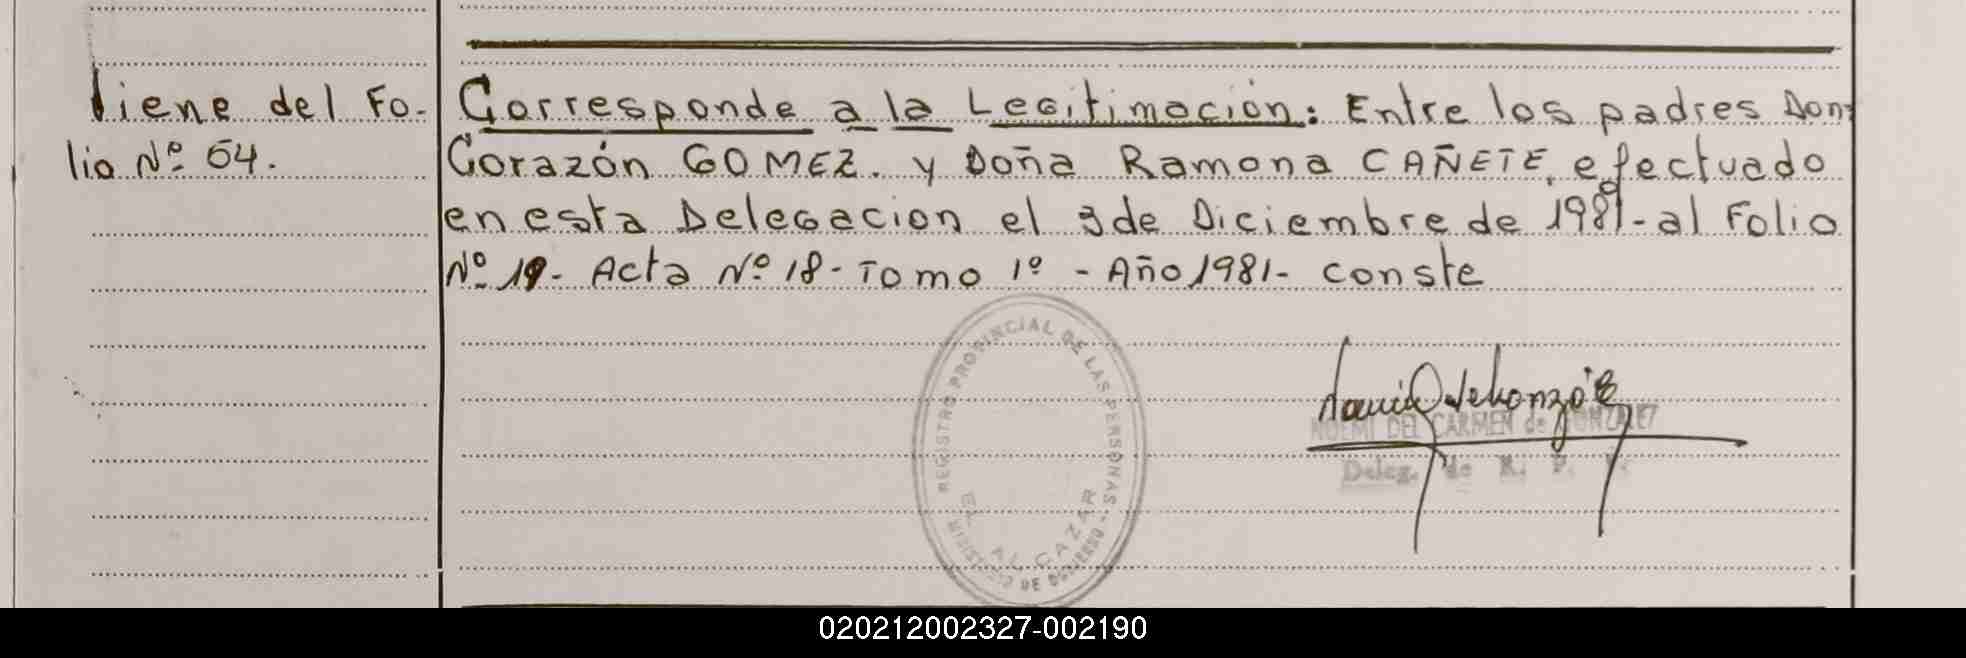 Viene del Fo-
lio Nº 64.
Corresponde a la Legitimación: Entre los padres Don
Corazón GOMEZ. y Doña Ramona CAÑETE, efectuado
en esta Delegacion el 3 de Diciembre de 1981- al Folio
Nº 19- Acta Nº 18- Tomo 1º - Año 1981- conste
REGISTRO PROVINCIAL DE LAS PERSONAS
MINISTERIO DE GOBIERNO
EL ALCAZAR
NOEMI DEL CARMEN de GONZALEZ
Deleg. de R. P.
020212002327-002190